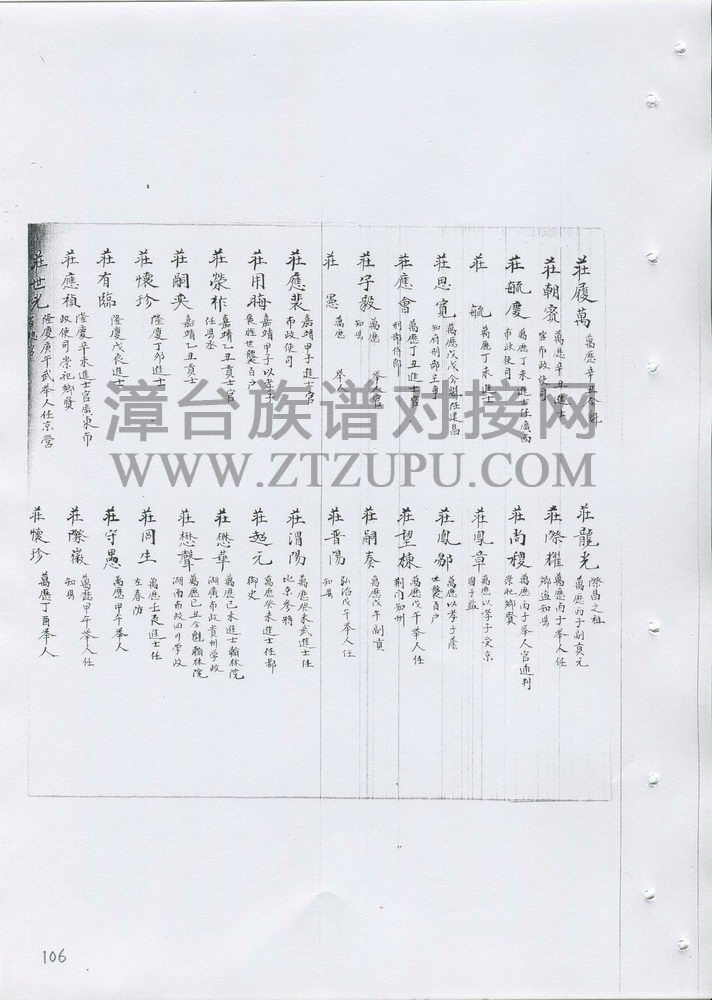 莊履萬 萬歷辛丑會魁
莊朝賓 萬歷辛丑進士官布政使司
莊毓慶 萬歷丁未進士任廣西布政使司
莊毓 萬歷丁未進士
莊思寬 萬歷戊戌會魁任建昌知府刑部主事
莊應會 萬歷丁丑進士官刑部侍郎
莊宇毅 萬歷 舉人官知縣
莊憲 萬歷 舉人
莊應裴 嘉靖甲子進士官布政使司
莊用晦 嘉靖甲子以孝子襄旌世襲百户
莊榮祚 嘉靖乙丑貢士官任县丞
莊嗣奕 嘉靖乙丑貢士
莊懷珍 隆慶丁卯進士
莊有臨 隆慶戊辰進士
莊應禎 隆慶辛未進士官廣東布政使司崇祀鄉賢
莊世元 隆慶庚午武舉人任京營
莊龍光 際昌之祖 萬歷丙子副貢元
莊際耀 萬歷丙子舉人任鄉進知县
莊尚稷 萬歷丙子舉人官通判崇祀鄉賢
莊鳳章 萬歷以孝子受京國子監
莊鳳鄒 萬歷以孝子蔭世襲百户
莊望棟 萬歷戊午舉人任荆门知州
莊嗣奏 萬歷戊午副貢
莊晋陽 弘治戊午舉人任知县
莊渭陽 萬歷癸未武進士任北京参將
莊起元 萬歷癸未進士任都御史
莊懋華 萬歷己未進士翰林院湖廣布政貴州学政
莊懋聲 萬歷己丑會魁翰林院湖南布政四川学政
莊同生 萬歷壬辰進士任左春防
莊守愚 萬歷甲午舉人
莊際徽 萬歷甲午舉人任知县
莊懷珍 萬歷丁酉舉人
漳台族谱对接网
WWW.ZTZUPU.COM
106